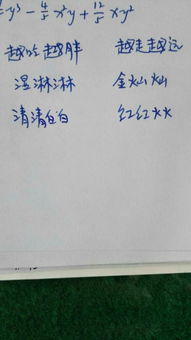 y³ - 4/5 x²y + 12/5 xy²
越吃越胖 越走越远
湿淋淋 金灿灿
清清白白 红红火火